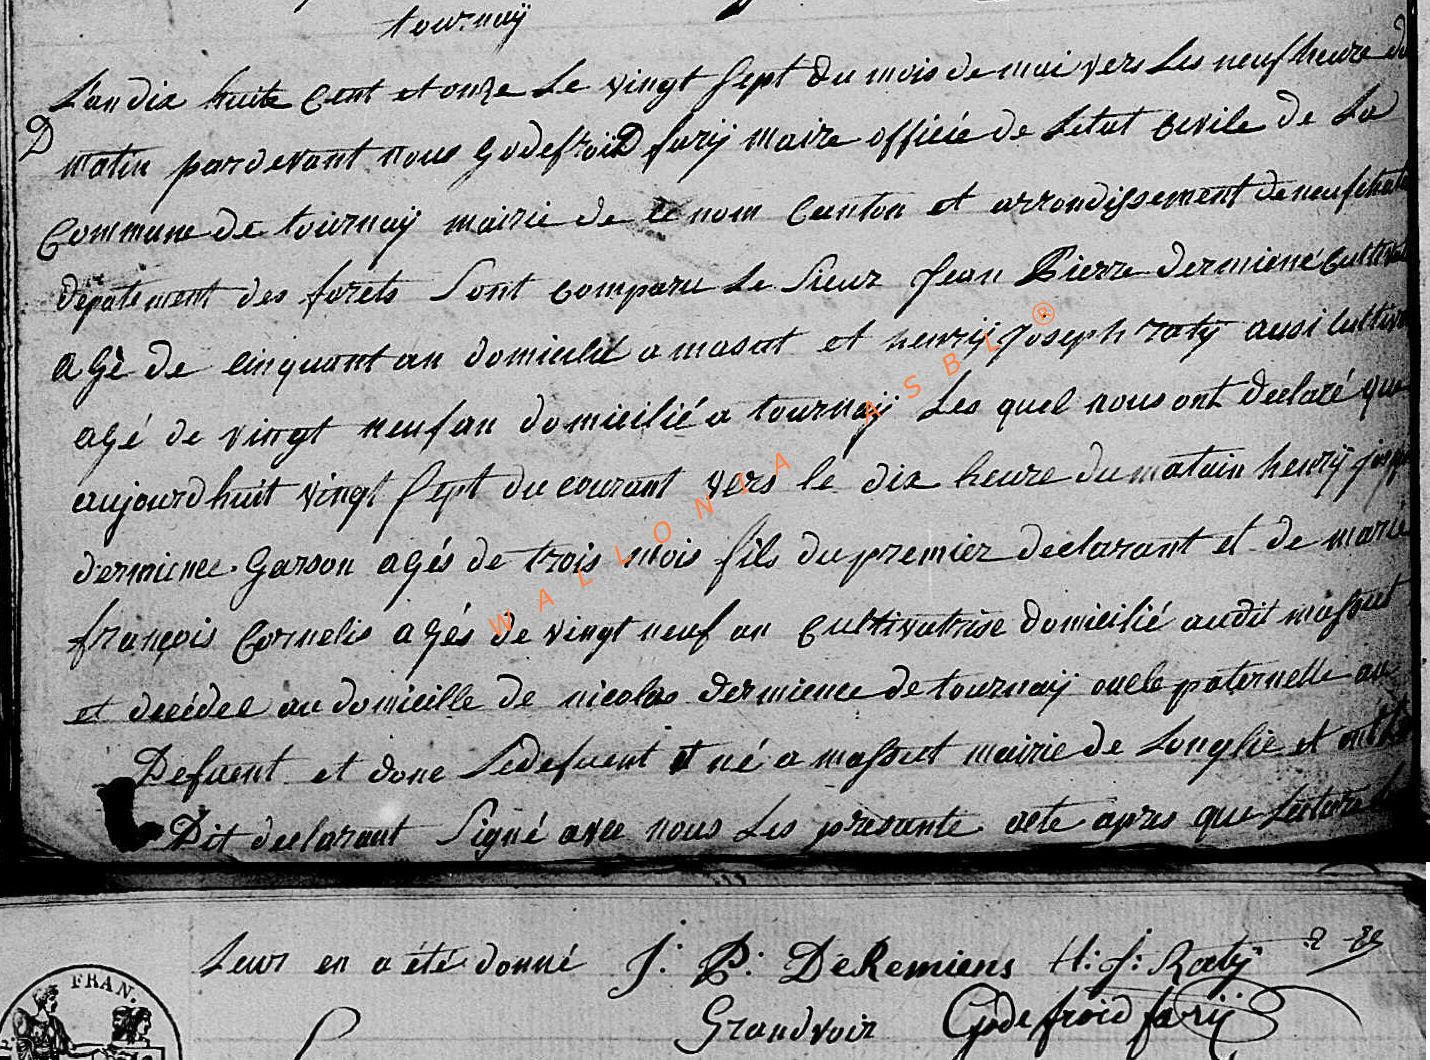 tournaÿ
L'an dix huite Cent et onze Le vingt sept du mois de mai vers Les neuf heure du
D
matin pardevant nous GodefroiD farij maire officié de Letat civile de La
Commune de tournaÿ mairie de ce nom Canton et arrondissement de neufchate
depatement des forets Sont comparu Le Sieur Jean Pierre dermiené cultivat
agé de cinquant an domicilié a masut et henrij Joseph raty ausi cultiva
agé de vingt neuf an domicilié a tournaÿ Les quel nous ont declaré que
aujourdhuit vingt sept du courant vers le dix heure du matain henrÿ josep
dermience Garson agés de trois mois fils du premier declarant et de marie
françois Cornelis agés de vingt neuf an cultivatrise domicilié audit massut
et decédée au domicille de nicolas dermience de tournaÿ oncle paternelle au
Defuent et donc Ledefuent et né a massut mairie de Longlie et ont Le
Dit declarant Signé avec nous Les presante acte apres que Lecture
Leur en a été donné J: P: DeRemiens H: J: Raty
Grandvoir Godefroid farij
FRAN.
WALLONIA ASBL ®